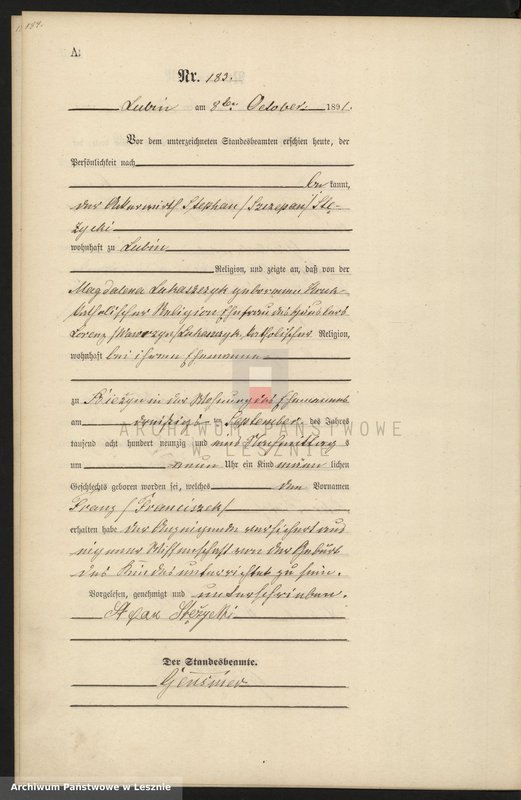 184.
A.
Nr. 183.
Lubin am 8ten October 1891.
Vor dem unterzeichneten Standesbeamten erschien heute, der
Persönlichkeit nach
be kannt,
der Ackerwirth Stephan /Szczepan/ Stę-
życki
wohnhaft zu Lubin
Religion, und zeigte an, daß von der
Magdalena Lukaszczyk geborenen
katholischer Religion Ehefrau des Häuslers
Lorenz /Wawrzyn/ Lukaszczyk, katholischer Religion,
wohnhaft bei ihrem Ehemanne
zu Bieżyn in der Wohnung des Ehemannes
am dreißigsten ten September des Jahres
tausend acht hundert neunzig und eins Nachmittag s
um neun Uhr ein Kind männ lichen
Geschlechts geboren worden sei, welches den Vornamen
Franz /Franciszek/
erhalten habe der Anzeigende versichert aus
eigener Wissenschaft von der Geburt
des Kindes unterrichtet zu sein.
Vorgelesen, genehmigt und unterschrieben.
Stężycki
Der Standesbeamte.
ARCHIWUM PAŃSTWOWE
W LESZNIE
Archiwum Panstwowe w Lesznie